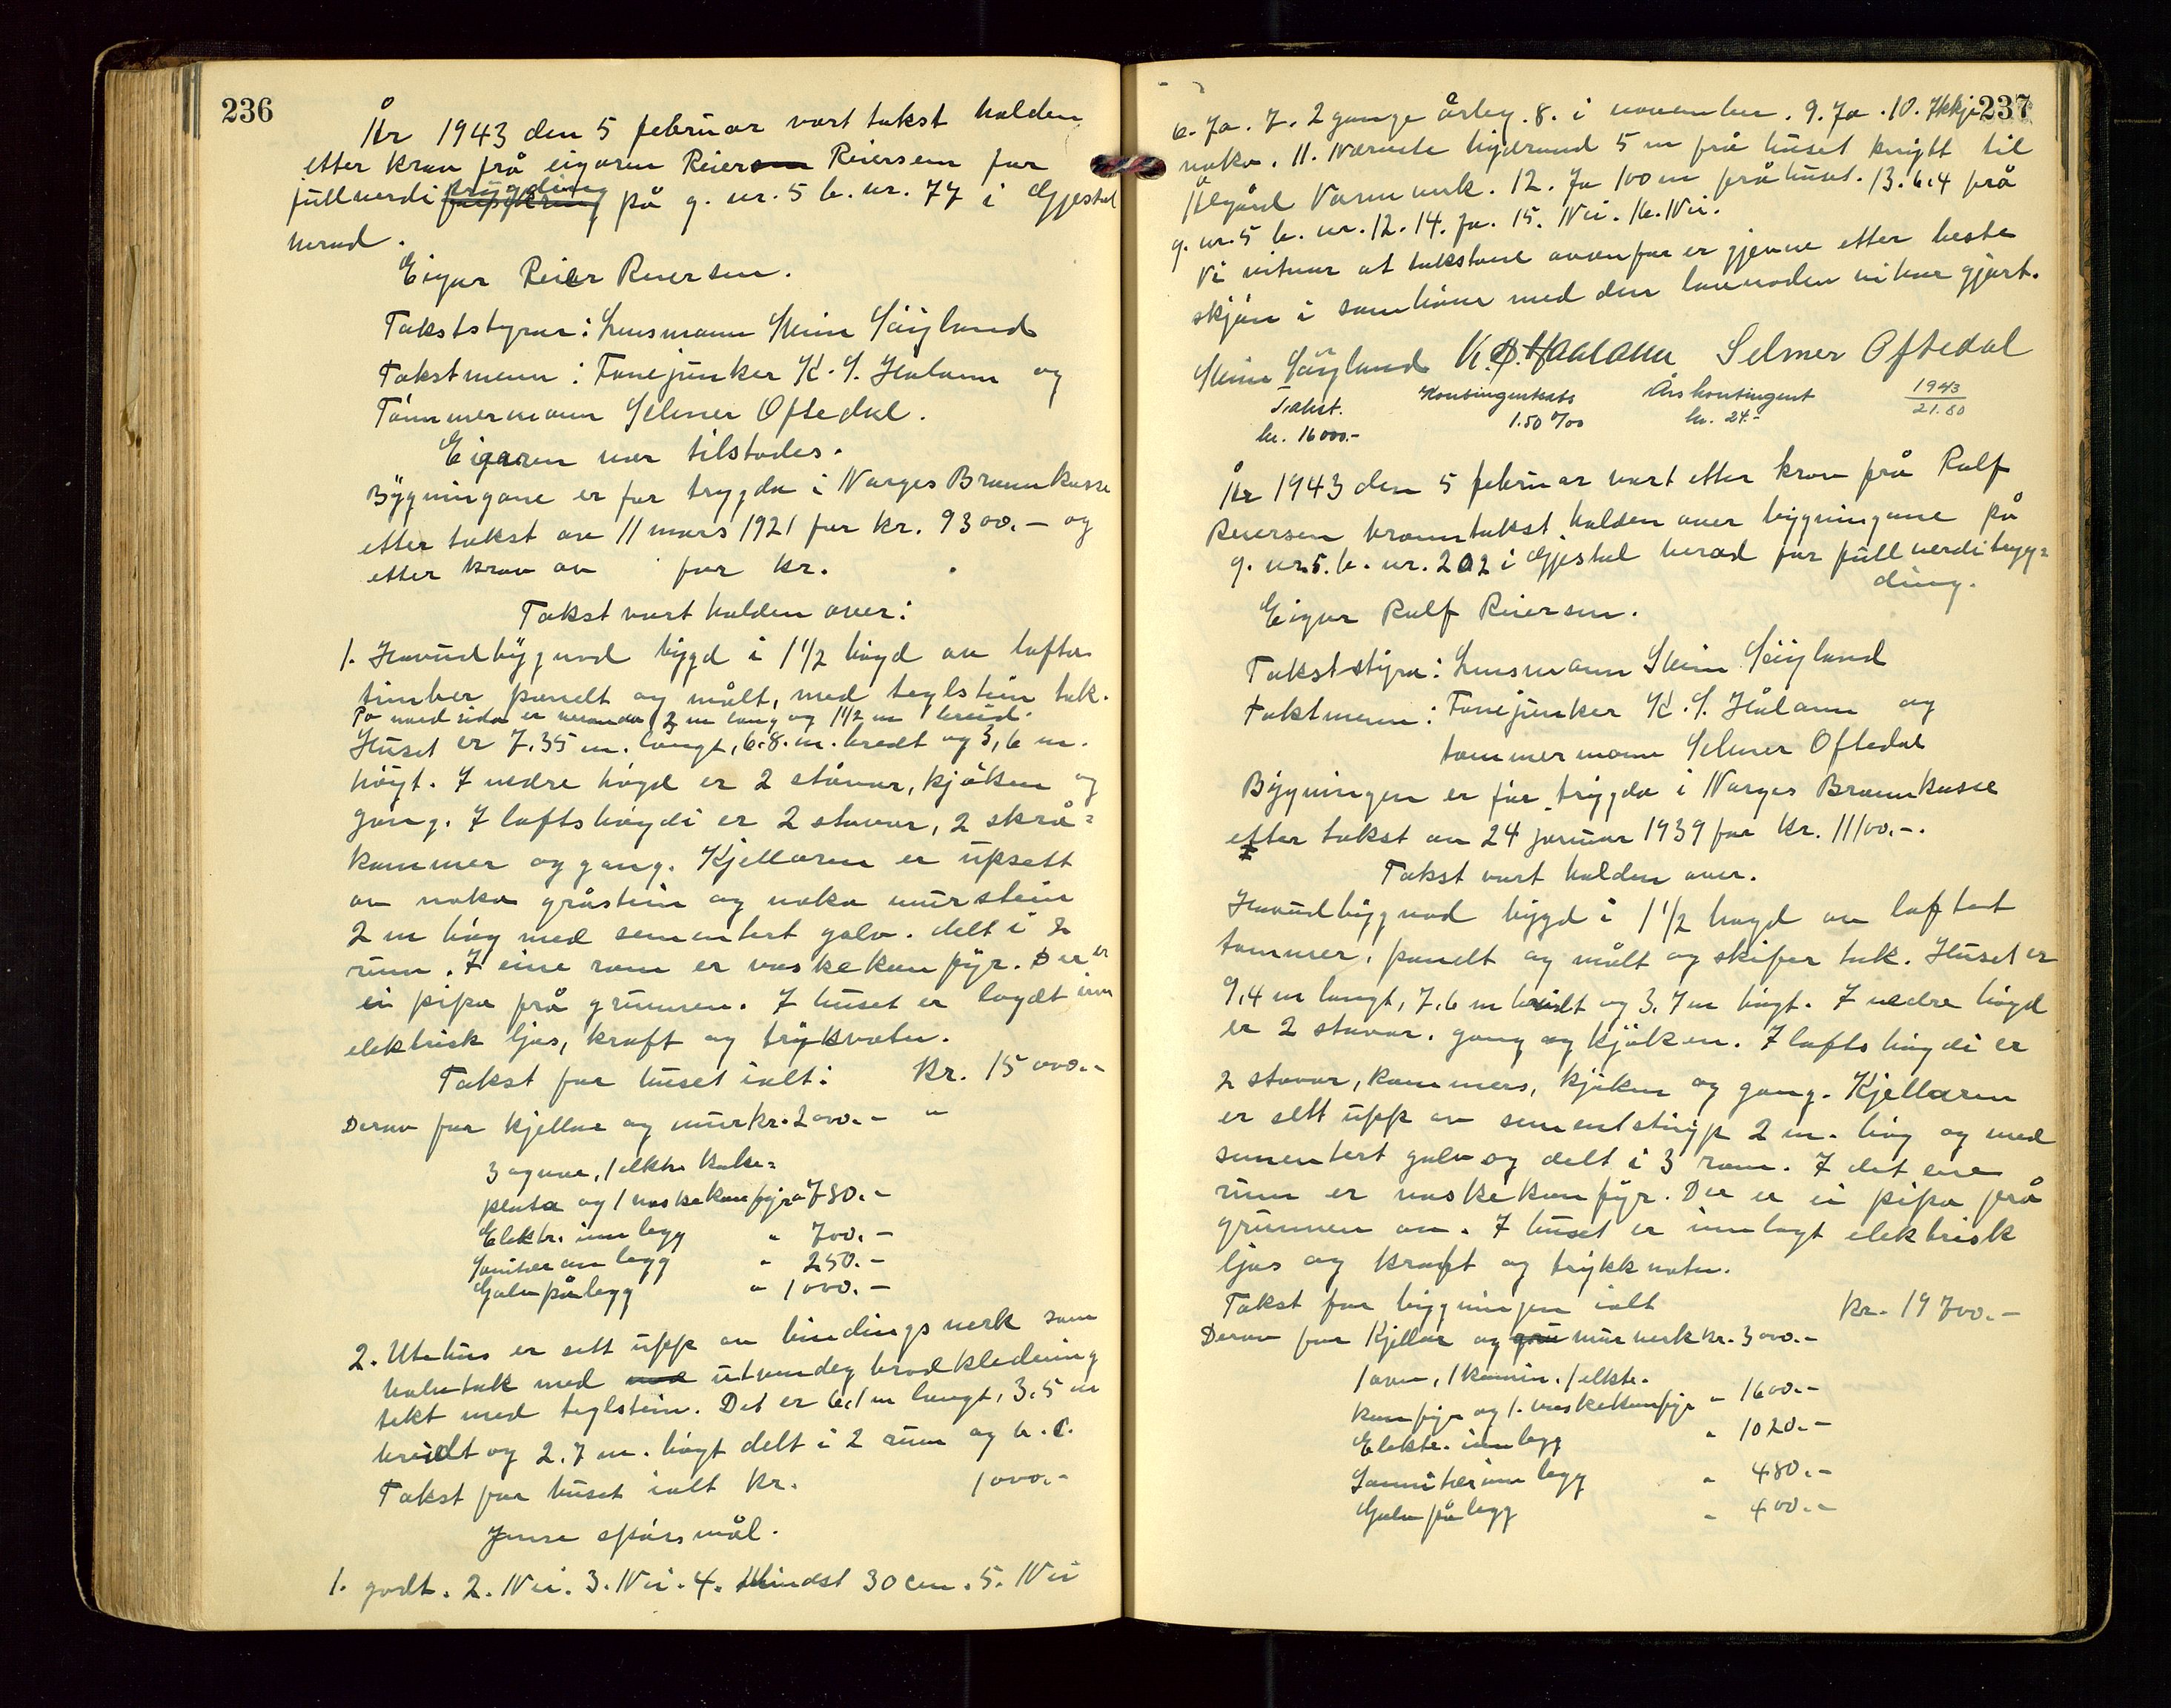 236
År 1943 den 5 februar vart takst halden
etter krav frå eigaren Reiersen Reiersen for
fullverdi trygding på g. nr. 5 b. nr. 77 i Gjestal
herad.
Eigar Reier Reiersen.
Takststyrar: Lensmann Stein Söyland
Takstmenn: Fanejunker K. S. Haaland og
Tömmermann Selmer Oftedal.
Eigaren var tilstades.
Bygningane er før trygda i Norges Brannkasse
etter takst av 11 mars 1921 for kr. 9300.- og
etter krav av for kr. .
Takst vart halden over:
1. Hovudbygnad bygd i 1 1/2 högd av lafta
timber panelt og målt, med teglstein tak.
På nord sida er veranda 2 m lang og 1 1/2 m breid.
Huset er 7.35 m. langt, 6.8. m. bredt og 3,6 m.
högt. I nedre högd er 2 stovur, kjöken og
gang. I loftshögdi er 2 stovur, 2 skrå=
kammer og gang. Kjellaren er upsett
av noko gråstein og noko murstein
2 m høg med sementert golv. delt i 2
rum. I eine rom er vaskekomfyr. Der er
ei pipa frå grunnen. I huset er lagdt inn
elektrisk ljos, kraft og trykvatn.
Takst for huset ialt: Kr. 15000.-
Derav for kjellar og mur kr. 2000.- "
3 ovnar, 1 elktr. koke=
plata og 1 vaskekomfyr " 780.-
Elektr. innlegg " 700.-
Sanitær innlegg " 250.-
Golvpålegg " 1000.-
2. Utehus er sett upp av bindingsverk som
halvtak med utvendig bordkledning
tekt med teglstein. Det er 6,1 m langt, 3.5 m
breidt og 2.7 m. högt delt i 2 rum og b. c.
Takst for huset ialt kr. 1000.-
Ymse spörsmål.
1. godt. 2. Nei. 3. Nei. 4. Mindst 30 cm. 5. Nei
237
6. Ja. 7. 2 gange årleg. 8. i november. 9. Ja. 10. Ikkje
noko. 11. Næmste hydrand 5 m frå huset knytt til
Ålgård Vannverk. 12. Ja 100 m frå huset. 13. 6.4 frå
g. nr. 5 b. nr. 12. 14. Ja. 15. Nei. 16. Nei.
Vi vitnar at takstane ovanfor er gjevne etter beste
skjön i samhöve med den lovnaden vi har gjort.
Stein Söyland K. S. Haaland Selmer Oftedal
Takst. Kontingentsats Årskontingent 1943
kr. 16000.- 1.50 ‰ kr. 24.- 21.60
År 1943 den 5 februar vart etter krav frå Ralf
Reiersen branntakst halden over bygningane på
g. nr. 5. b. nr. 202 i Gjestal herad for fullverditryg=
ding.
Eigar Ralf Reiersen.
Takststyra: Lensmann Stein Söyland
Takstmenn: Fanejunker K. S. Håland og
tømmermann Selmer Oftedal
Bygningen er før trygda i Norges Brannkasse
etter takst av 24 januar 1939 for kr. 11100.-.
Takst vart halden over.
Hovudbygnad bygd i 1 1/2 högd av laftert
tømmer, panelt og målt og skifer tak. Huset er
9,4 m langt, 7,6 m breidt og 3.7 m högt. I nedre högd
er 2 stovur, gang og kjöken. I loftshögdi er
2 stovur, kammers, kjöken og gang. Kjellaren
er sett upp av sementstöyp 2 m. høg og med
sementert golv og delt i 3 rom. I det ene
rum er vaskekomfyr. Der er ei pipa frå
grunnen av. I huset er innlagt elektrisk
ljos og kraft og trykkvatn.
Takst for bygningen ialt Kr. 19700.-
Derav for kjellar og murverk kr. 3000.-
1 ovn, 1 kamin, 1 elktr.
komfyr og 1. vaskekomfyr " 1600.-
Elektr. innlegg " 1020.-
Sannitærinnlegg " 480.-
Golvpålegg " 400.-